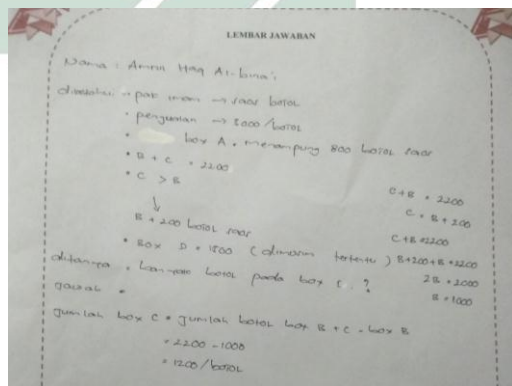 LEMBAR JAWABAN
Nama : Amrin Haq Al-bina'
diketahui → pak imam → saos botol
• penjualan → 8000 /botol
• box A = menampung 800 botol saos
• B + C = 2200
• C > B
↓
B + 200 botol saos
• Box D = 1500 (dimusim tertentu)
C + B = 2200
C = B + 200
C + B = 2200
B + 200 + B = 2200
2B = 2000
B = 1000
ditanya = botol pada box C ?
jawab =
jumlah box C = jumlah botol box B + C - box B
= 2200 - 1000
= 1200 / botol